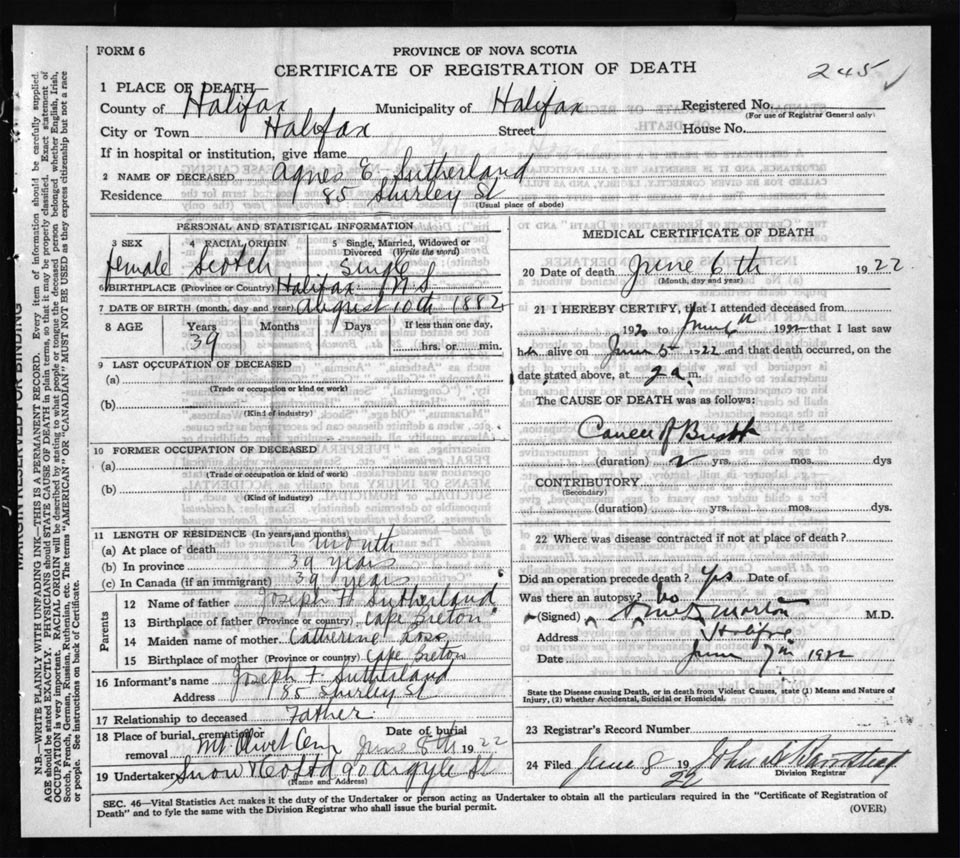 FORM 6
PROVINCE OF NOVA SCOTIA
CERTIFICATE OF REGISTRATION OF DEATH
245
1 PLACE OF DEATH—
County of Halifax Municipality of Halifax Registered No.
(For use of Registrar General only)
City or Town Halifax Street House No.
If in hospital or institution, give name
2 NAME OF DECEASED Agnes E. Sutherland
Residence 85 Shirley St
(Usual place of abode)
PERSONAL AND STATISTICAL INFORMATION
3 SEX 4 RACIAL ORIGIN 5 Single, Married, Widowed or Divorced (Write the word)
female Scotch Single
6 BIRTHPLACE (Province or Country) Halifax N.S.
7 DATE OF BIRTH (month, day and year) August 10th 1882
8 AGE Years Months Days If less than one day,
39 hrs. or min.
9 LAST OCCUPATION OF DECEASED
(a)
(Trade or occupation or kind or work)
(b)
(Kind of industry)
10 FORMER OCCUPATION OF DECEASED
(a)
(Trade or occupation or kind or work)
(b)
(Kind of industry)
11 LENGTH OF RESIDENCE (In years and months)
(a) At place of death month
(b) In province 39 years
(c) In Canada (if an immigrant) 39 years
Parents
12 Name of father Joseph H Sutherland
13 Birthplace of father (Province or country) Cape Breton
14 Maiden name of mother Catherine Ross
15 Birthplace of mother (Province or country) Cape Breton
16 Informant's name Joseph F. Sutherland
Address 85 Shirley St
17 Relationship to deceased Father
18 Place of burial, cremation or removal Mt. Olivet Cem Date of burial June 8th 1922
19 Undertaker Snow & Co Ltd 90 Argyle St
(Name and Address)
MEDICAL CERTIFICATE OF DEATH
20 Date of death June 6th 1922
(Month, day and year)
21 I HEREBY CERTIFY, that I attended deceased from
1920 to June 6 1922 that I last saw
her alive on June 5 1922 and that death occurred, on the
date stated above, at 2 a m.
The CAUSE OF DEATH was as follows:
Cancer of Breast
(duration) 2 yrs. mos. dys
CONTRIBUTORY
(Secondary)
(duration) yrs. mos. dys
22 Where was disease contracted if not at place of death?
Did an operation precede death? Yes Date of
Was there an autopsy? No
(Signed) Morton M.D.
Address Halifax
Date June 7th 1922
State the Disease causing Death, or in death from Violent Causes, state (1) Means and Nature of
Injury, (2) whether Accidental, Suicidal or Homicidal.
23 Registrar's Record Number
24 Filed June 8 1922
Division Registrar
SEC. 46—Vital Statistics Act makes it the duty of the Undertaker or person acting as Undertaker to obtain all the particulars required in the "Certificate of Registration of
Death" and to fyle the same with the Division Registrar who shall issue the burial permit. (OVER)
MARGIN RESERVED FOR BINDING
N.B.—WRITE PLAINLY WITH UNFADING INK—THIS IS A PERMANENT RECORD. Every item of information should be carefully supplied.
AGE should be stated EXACTLY. PHYSICIANS should STATE CAUSE OF DEATH in plain terms so that it may be properly classified. Exact statement of
OCCUPATION is very important. RACIAL ORIGIN will be described by stating to what people or tongue the deceased person belonged whether English, Irish,
Scotch, French, German, Russian, Ruthenian, etc. The terms "AMERICAN" OR "CANADIAN" MUST NOT BE USED as they express citizenship but not a race
or people. See instructions on back of Certificate.